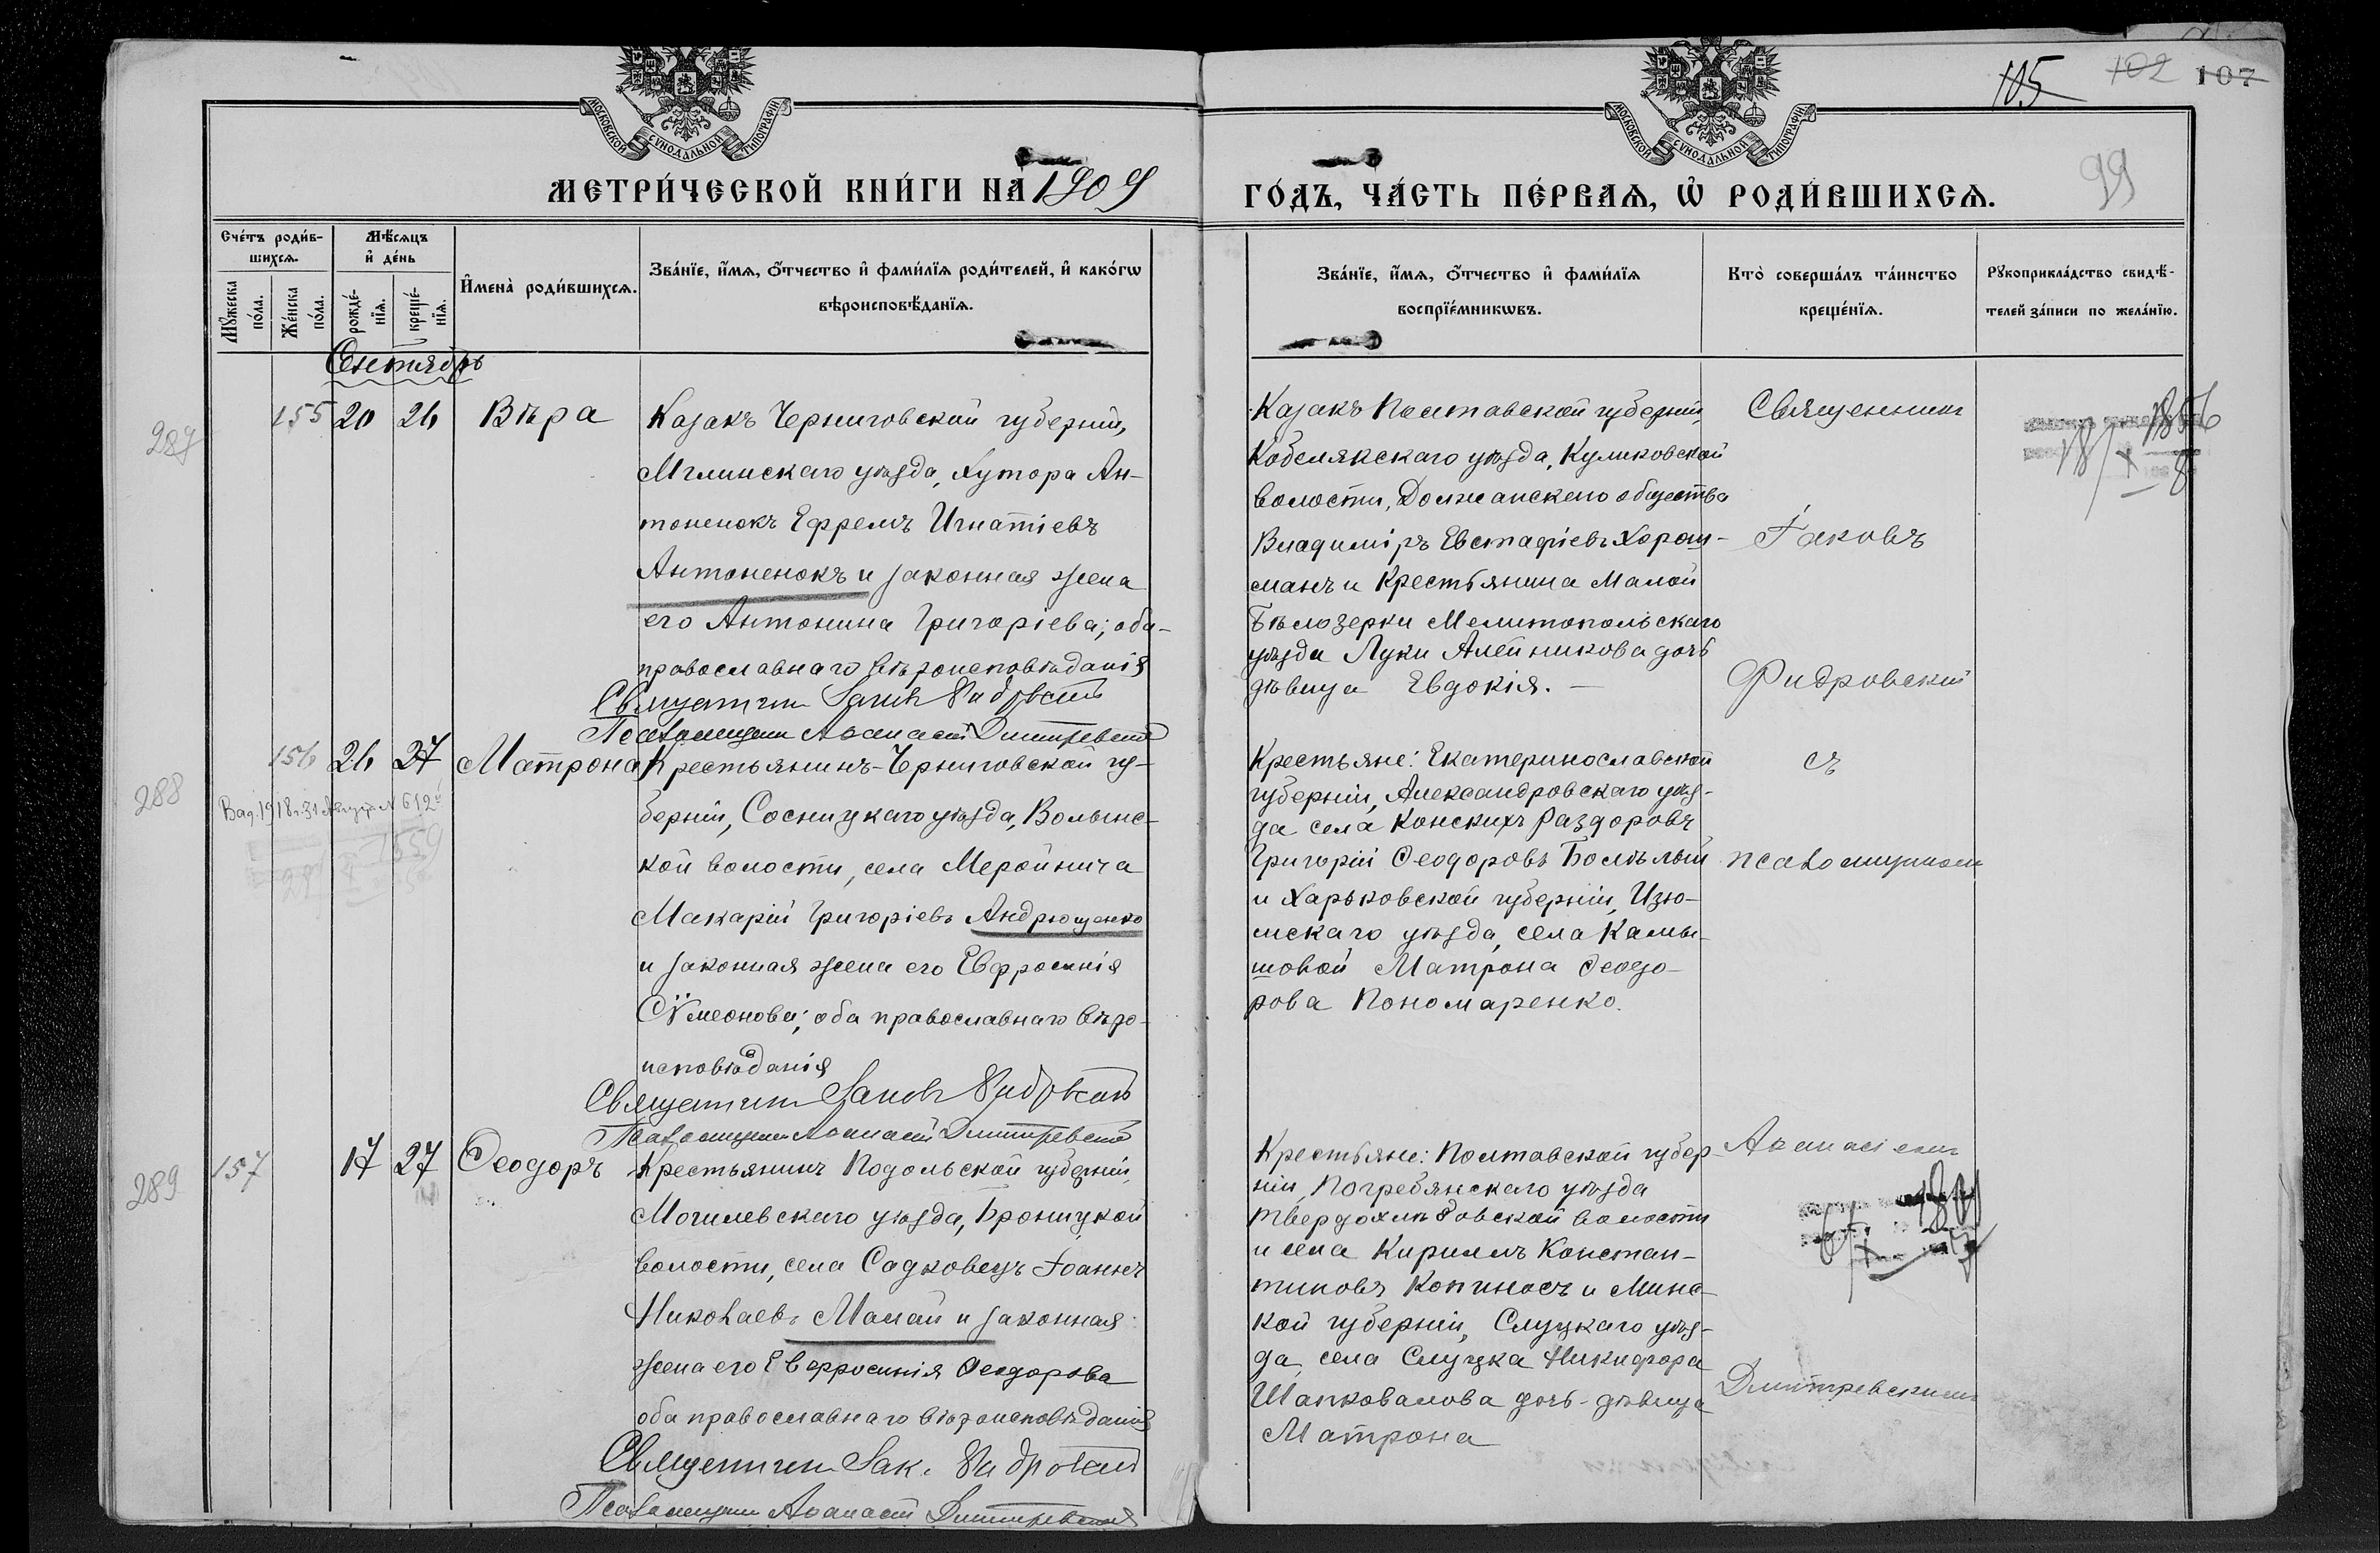 105 102 107
МОСКОВСКОЙ СѴНОДАЛЬНОЙ ТИПОГРАФІИ
МОСКОВСКОЙ СѴНОДАЛЬНОЙ ТИПОГРАФІИ
МЕТРИ́ЧЕСКОЙ КНИ́ГИ НА 1909
ГО́ДЪ, ЧА́СТЬ ПЕ́РВАѦ, Ѡ РОДИ́ВШИХСѦ.
99
Сче́тъ роди́в-
шихсѧ.
Мꙋ́жеска по́ла.
Же́нска по́ла.
Мѣ́сѧцъ
и҆ де́нь
рожде́-
нїѧ.
креще́-
нїѧ.
И҆мена̀ роди́вшихсѧ.
Зва́нїе, и҆́мѧ, ѻ҆́тчество и҆ фами́лїѧ роди́телей, и҆ како́гѡ
вѣроисповѣ́данїѧ.
Зва́нїе, и҆́мѧ, ѻ҆́тчество и҆ фами́лїѧ
воспрїе́мникѡвъ.
Кто̀ соверша́лъ та́инство
креще́нїѧ.
Рꙋкоприкла́дство свидѣ́-
телей за́писи по жела́нїю.
Сентябрь
287
155 20 26 Вѣра
Казакъ Черниговской губерніи,
Мглинскаго уѣзда, Хутора Ан-
тоненокъ Ефремъ Игнатіевъ
Антоненокъ и законная жена
его Антонина Григоріева; оба
православнаго вѣроисповѣданія
Священникъ Іаковъ Фидровскій
Псаломщикъ Аѳанасій Димитревскій
Казакъ Полтавской губерніи,
Кобелякскаго уѣзда, Куликовской
волости, Должанскаго общества
Владиміръ Евстафіевъ Хорош-
манъ и Крестьянина Малой
Бѣлозерки Мелитопольскаго
уѣзда Луки Алейникова дочь
дѣвица Евдокія.
Священникъ
Іаковъ
Фидровскій
1856
288
156 26 27 Матрона
Крестьянинъ Черниговской гу-
берніи, Сосницкаго уѣзда, Волынс-
кой волости, села Меройнича
Макарій Григоріевъ Андрющенко
и законная жена его Евфросинія
Сѵмеонова; оба православнаго вѣро-
исповѣданія
Священникъ Іаковъ Фидровскій
Псаломщикъ Аѳанасій Димитревскій
Выд. 1918 г. 31 Августа № 612
1559
Крестьяне: Екатеринославской
губерніи, Александровскаго уѣз-
да села Конскихъ Раздоровъ
Григорій Ѳеодоровъ
и Харьковской губерніи, Изю-
мскаго уѣзда, села Камы-
шовой Матрона Ѳеодо-
рова Пономаренко.
съ
псаломщикомъ
289
157 17 27 Ѳеодоръ
Крестьянинъ Подольской губерніи,
Могилевскаго уѣзда, Броницкой
волости, села Садковецъ Іоаннъ
Николаевъ Малай и законная
жена его Евфросинія Ѳеодорова
оба православнаго вѣроисповѣданія
Священникъ Іак. Фидровскій
Псаломщикъ Аѳанасій Димитревскій
Крестьяне: Полтавской губер-
ніи, Погребянскаго уѣзда
Твердохлѣбовской волости
и села Кириллъ Констан-
тиновъ Копиносъ и Минс-
кой губерніи, Слуцкаго уѣз-
да, села Слуцка Никифора
Шапковалова дочь-дѣвица
Матрона
Аѳанасіемъ
Димитревскимъ